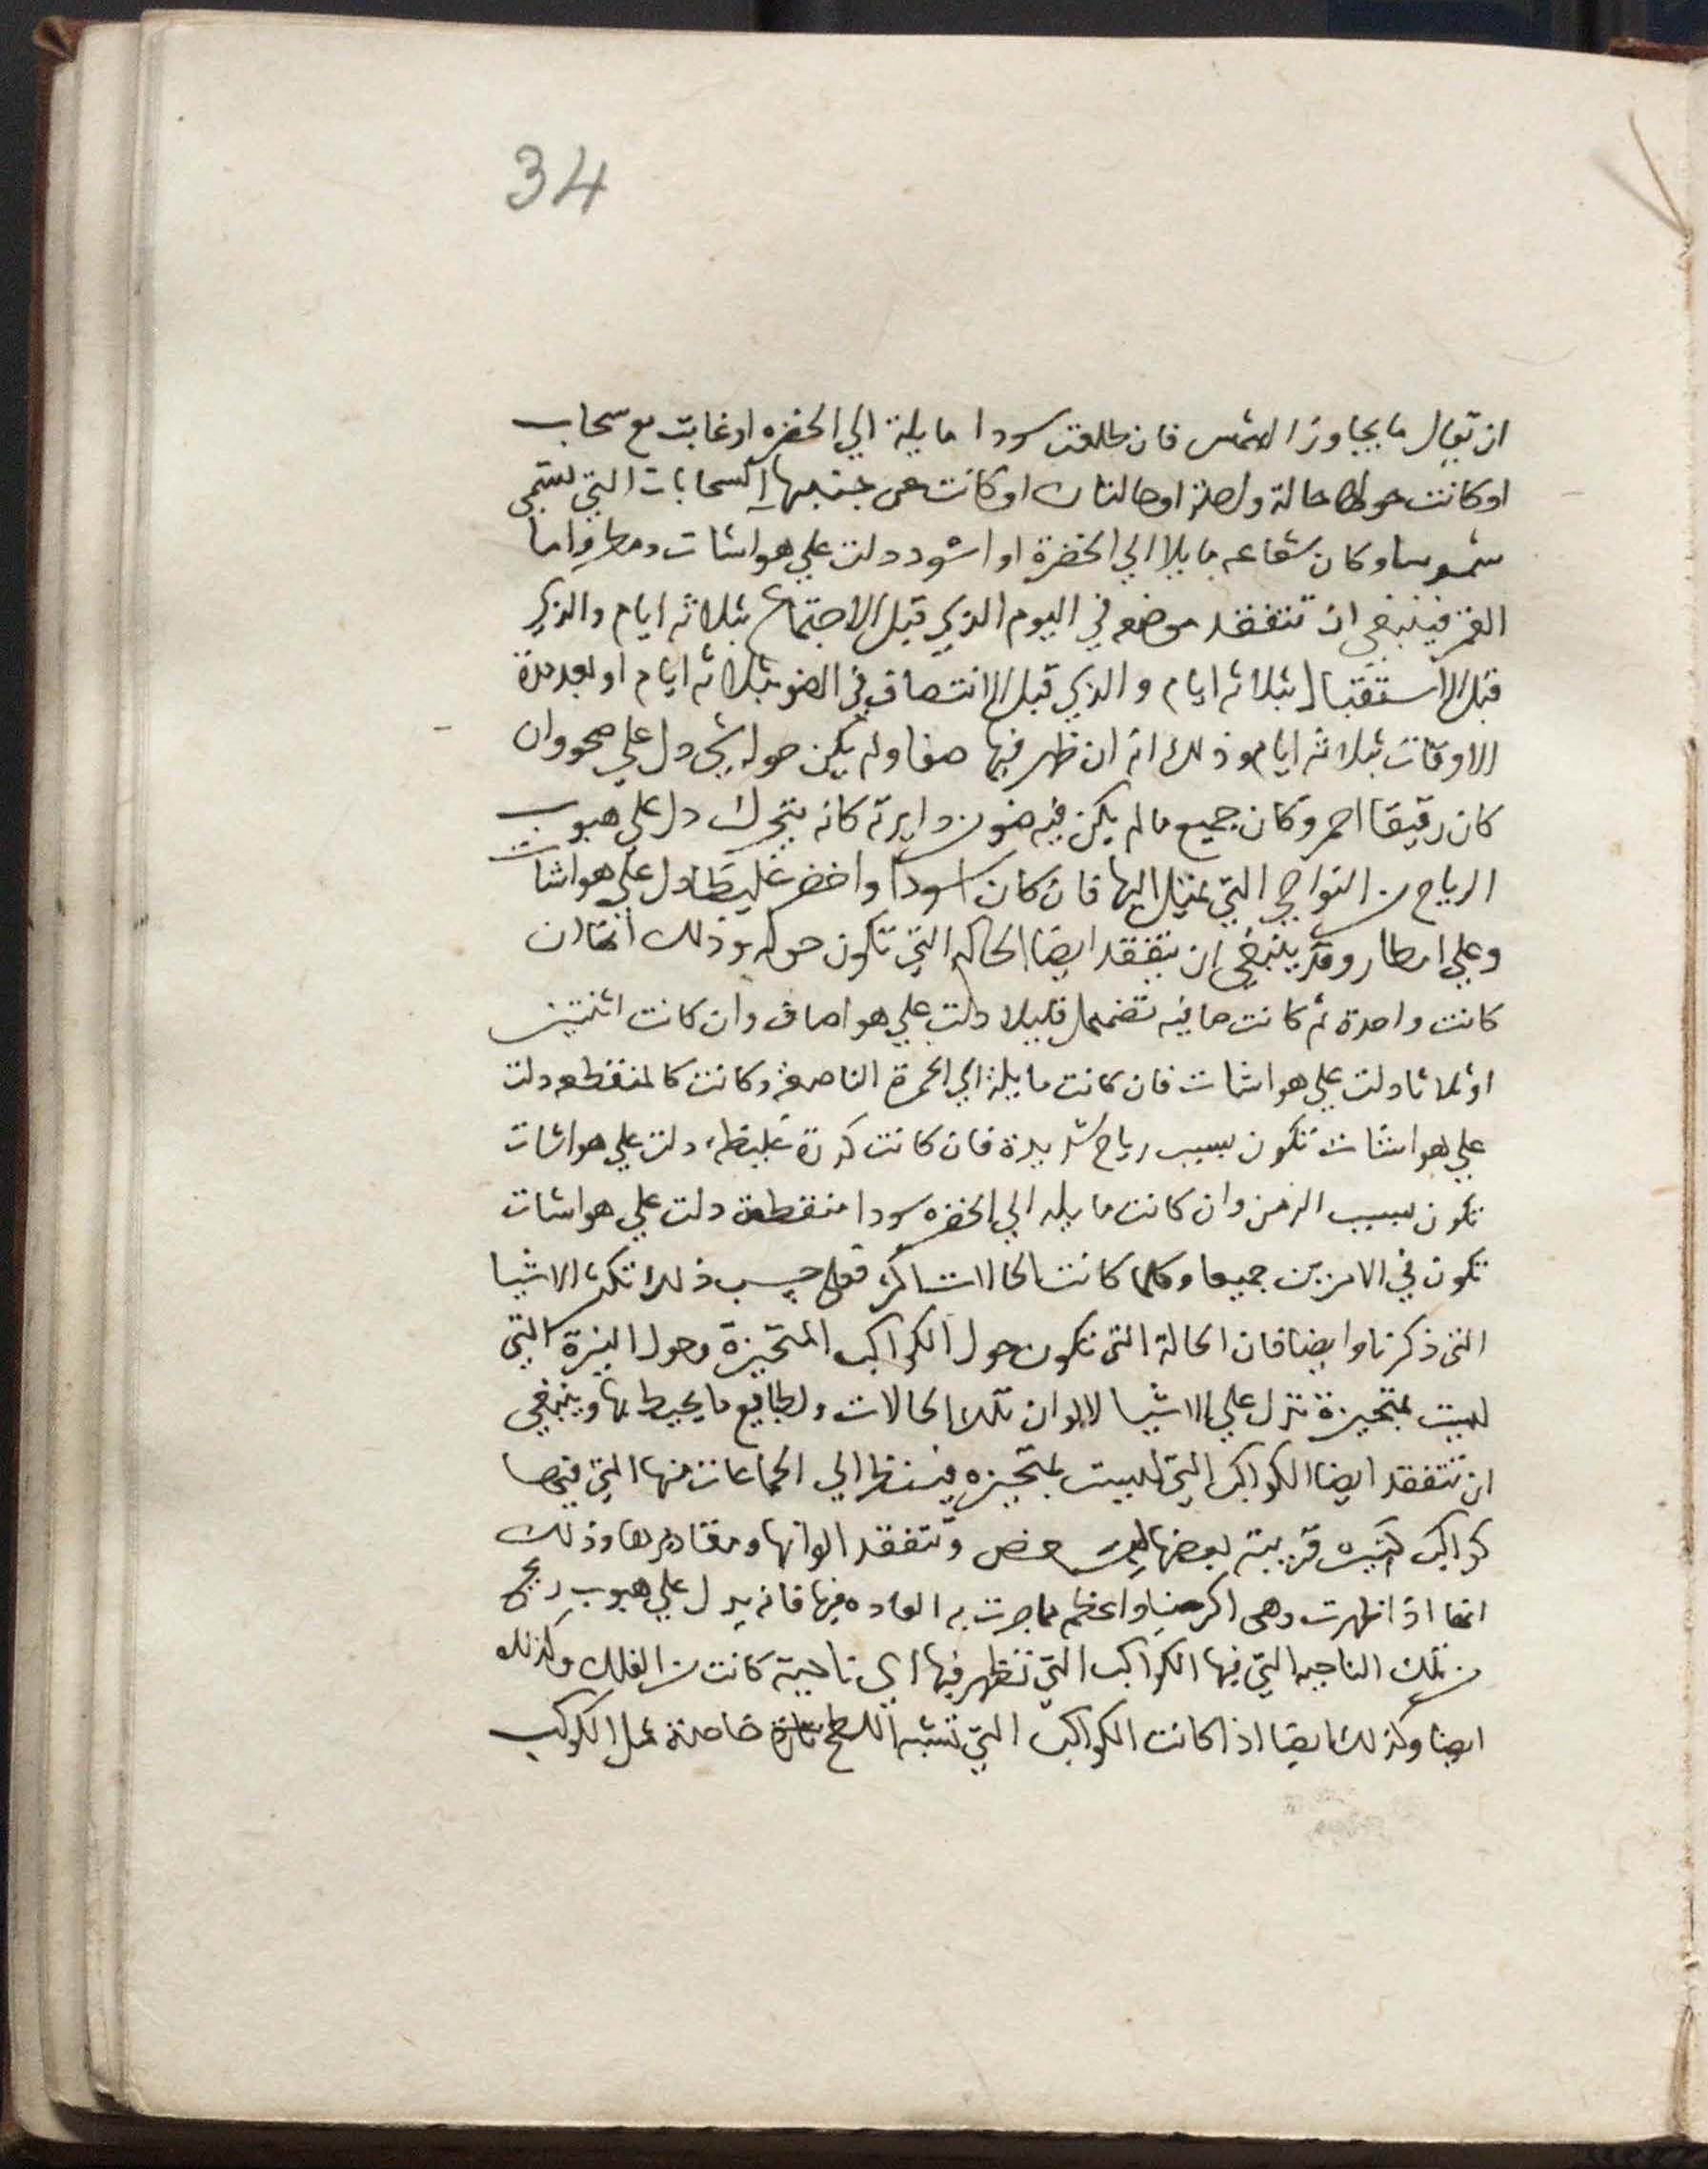 34
ان يقال ما يجاوز الشمس فان طلعت سودا مايلة الي الخضره او غابت مع سحاب
او كانت حولها حالة واحدة او حالتان او كانت عن جنبيها السحابات التي تسمى
شموسا وكان شعاعه مايلا الي الخضرة او اسود دلت علي هواشات ومطر واما
القمر فينبغي ان تتفقد موضعه في اليوم الذي قبل الاجتماع بثلاثه ايام والذي
قبل الاستقبال بثلاثه ايام والذي قبل الانتصاف في الضو بثلاثه ايام او بعد هذة
الاوقات بثلاثه ايام وذلك انه ان ظهر فيها صفا ولم يكن حوله شي دل علي صحو وان
كان رقيقا احمر وكان جميع ما لم يكن فيه ضو من دايرته كانه يتحرك دل علي هبوب
الرياح من النواحي التي يميل اليها فان كان اسودا واخضر غليظا دل علي هواشات
وعلي امطار وقد ينبغي ان يتفقد ايضا الحاله التي تكون حوله وذلك انها ان
كانت واحدة ثم كانت صافيه تضمحل قليلا دلت علي هوا صاف وان كانت اثنتين
او ثلاثا دلت علي هواشات فان كانت مايلة الي الحمرة الناصعة وكانت كالمنقطعه دلت
علي هواشات تكون بسبب رياح شديدة فان كانت كدرة غليظه دلت علي هواشات
تكون بسبب الزمن وان كانت مايله الي الخضره سودا منقطعة دلت علي هواشات
تكون في الامرين جميعا وكلما كانت الحالات اكثر فعلي حسب ذلك تكثر الاشيا
التي ذكرنا وايضا فان الحالة التي تكون حول الكواكب المتحيزة وحول النيرة التي
ليست بمتحيزة تدل علي الاشيا لالوان تلك الحالات ولطبايع ما يحيط بها وينبغي
ان تتفقد ايضا الكواكب التي ليست بمتحيزه فينظر الي الجماعات منها التي فيها
كواكب كثيره قريبة بعضها من بعض وتتفقد الوانها ومقاديرها وذلك
انها اذا ظهرت وهي اكثر ضيا واعظم مما جرت به العاده فيها فانه يدل علي هبوب ريح
من تلك الناحيه التي فيها الكواكب التي تظهر فيها اي ناحية كانت من الفلك وكذلك
ايضا وكذلك ايضا اذا كانت الكواكب التي تشبه اللطخ خاصة مثل الكوكب